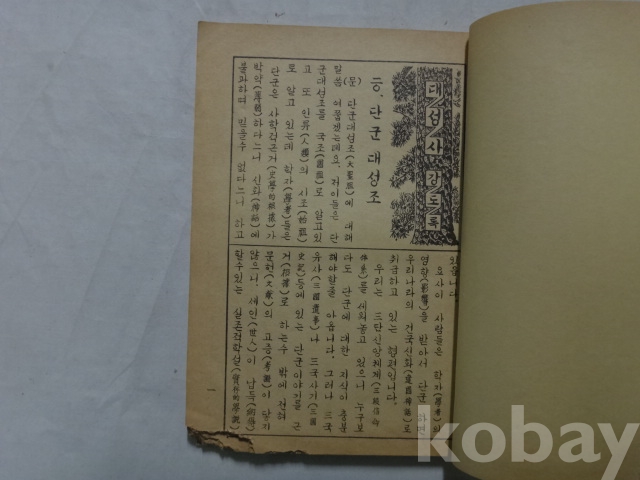 대성사 강도록
등. 단군 대성조
(문) 단군대성조(大聖祖)에 대해
말씀 여쭙겠는데요. 저이들은 단
군대성조를 국조(國祖)로 알고있
고 또 인류(人類)의 시조(始祖)
로 알고 있는데 학자(學者)들은
단군은 사학적근거(史學的根據)가
박약(薄弱)하다느니 신화(神話)에
불과하며 믿을수 없다느니 하고
있읍니다
요사이 사람들은 학자(學者)의
영향(影響)을 받아서 단군 하면
우리나라의 건국신화(建國神話)로
취급하고 있는 형편입니다.
우리는 삼단신앙체계(三段信仰
体系)를 세워놓고 있으니 누구보
다도 단군에 대한 지식이 충분
해야할줄 아옵니다. 그러나 삼국
유사(三國遺事)나 삼국사기(三國
史記)등에 있는 단군이야기를 근
거(根據)로 하는수 밖에 전혀
문헌(文献)의 고증(考證)이 닿지
않으니. 세인(世人)이 납득(納得)
할수있는 실증적학설(實証的學說)
一
kobay